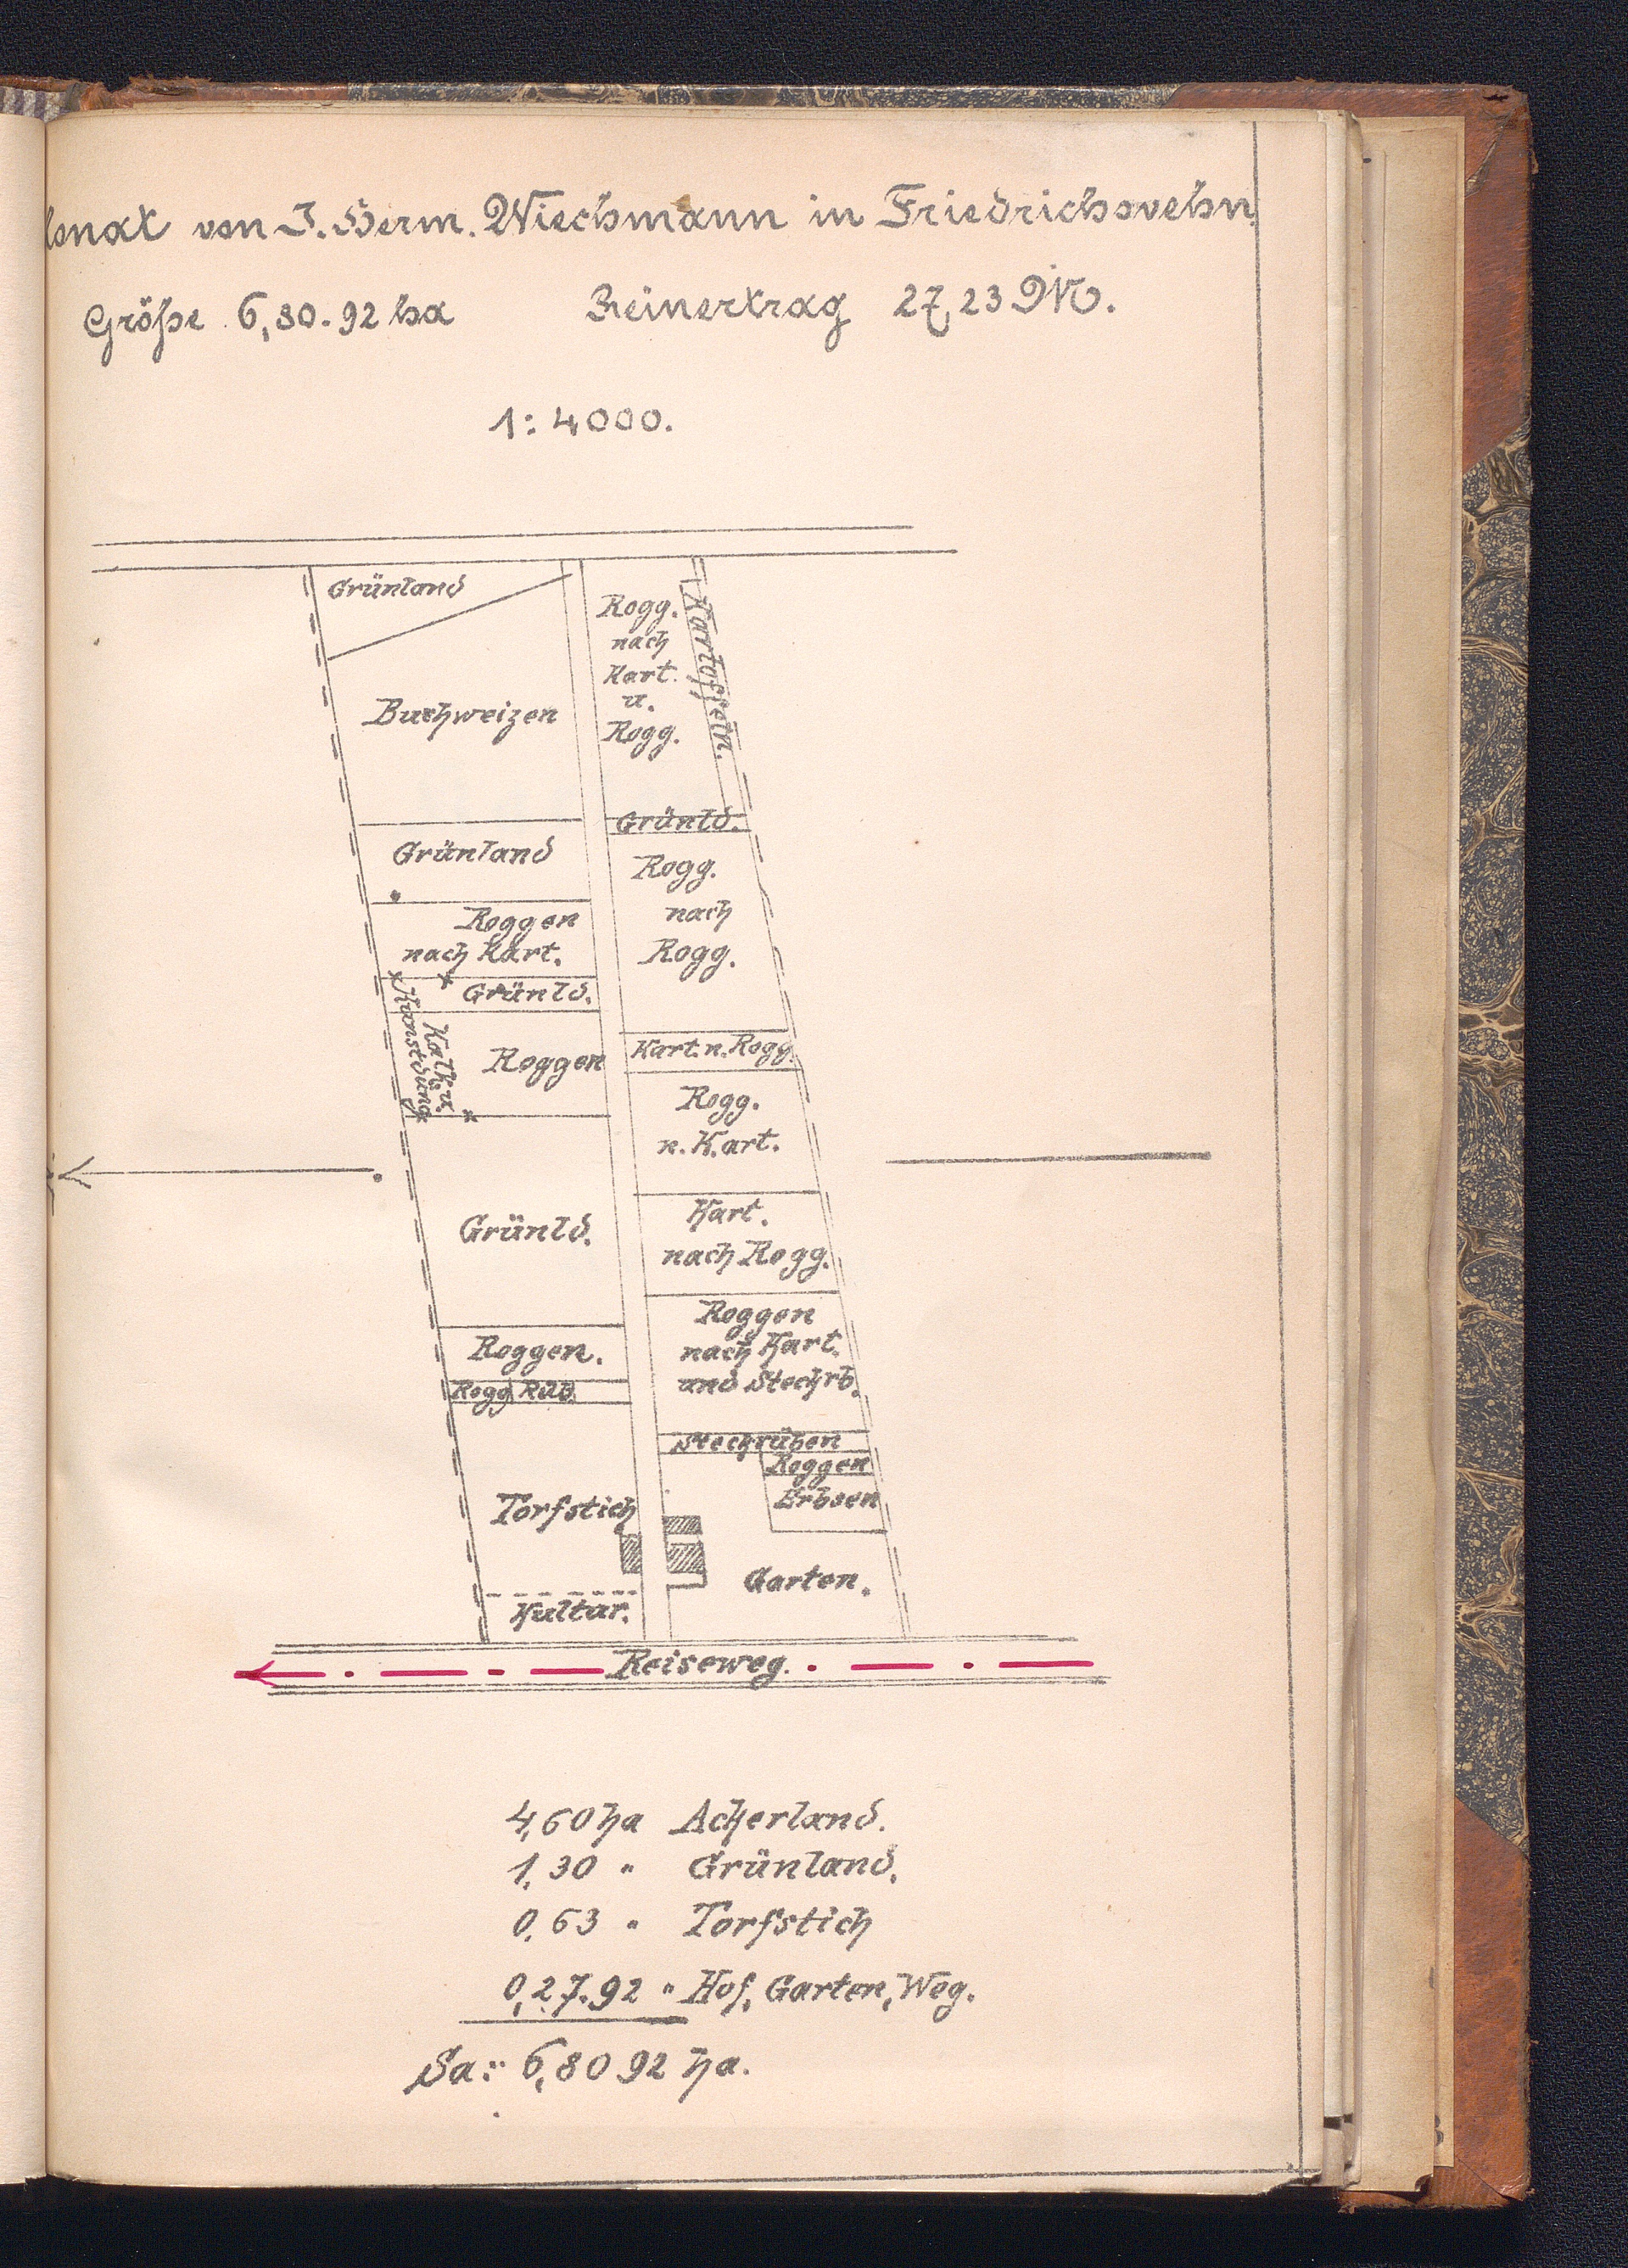 von J. Herm. Wiechmann in Friedrichsvehn.
Größe 6,80.92 ha Reinertrag 27,23 M.
1:4000.
Grünland
Buchweizen
Grünland
Roggen
nach Kart.
Grünld.
Kalk u.
Kunstdüng.
Roggen
Grünld.
Roggen.
Rogg. Rüb.
Torfstich
Kultur.
Rogg.
nach
Kart.
u.
Rogg.
Kartoffeln.
Grünld.
Rogg.
nach
Rogg.
Kart. n. Rogg.
Rogg.
n. Kart.
Kart.
nach Rogg.
Roggen
nach Kart.
und Steckrb.
Steckrüben
Roggen
Erbsen
Garten.
Reiseweg.
4,60 ha Ackerland.
1,30 " Grünland.
0,63 " Torfstich
0,27.92 " Hof, Garten, Weg.
Sa: 6,80 92 ha.